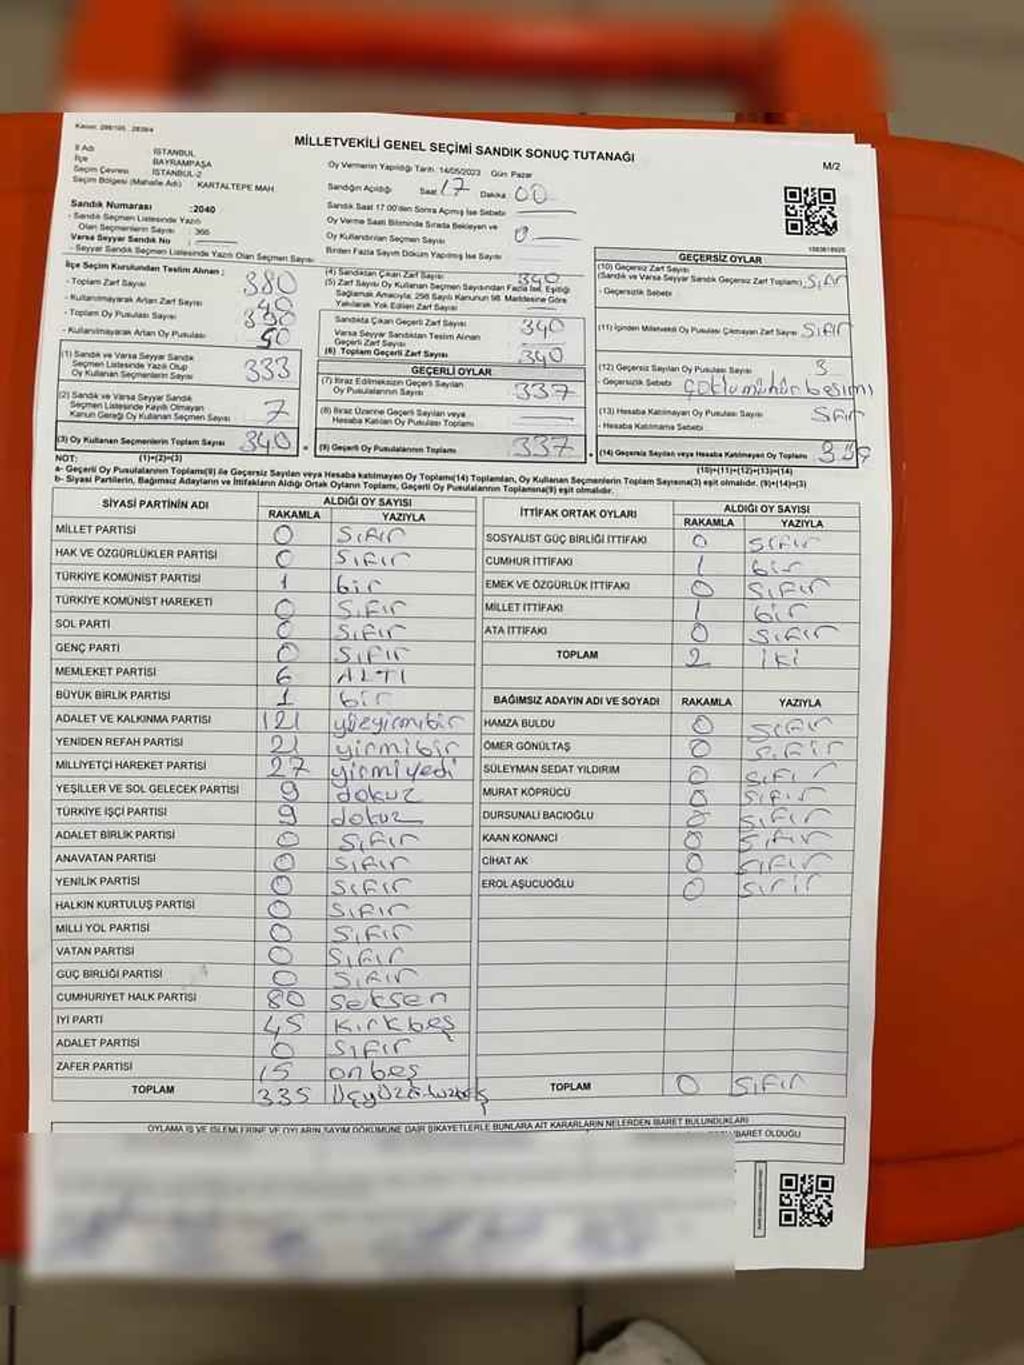 MİLLETVEKİLİ GENEL SEÇİMİ SANDIK SONUÇ TUTANAĞI
M/2
İl Adı İSTANBUL
İlçe BAYRAMPAŞA
Seçim Çevresi İSTANBUL-2
Seçim Bölgesi (Mahalle Adı) KARTALTEPE MAH.
Sandık Numarası :2040
- Sandık Seçmen Listesinde Yazılı
Olan Seçmenlerin Sayısı : 366
Varsa Seyyar Sandık No :
- Seyyar Sandık Seçmen Listesinde Yazılı Olan Seçmen Sayısı:
Oy Vermenin Yapıldığı Tarih :14/05/2023 Gün Pazar
Sandığın Açıldığı Saat 17 Dakika 00
Sandık Saat 17.00'den Sonra Açılmış İse Sebebi
Oy Verme Saati Bitiminde Sırada Bekleyen ve
Oy Kullandırılan Seçmen Sayısı 0
Birden Fazla Sayım Döküm Yapılmış İse Sayısı
İlçe Seçim Kurulundan Teslim Alınan :
- Toplam Zarf Sayısı 380
- Kullanılmayarak Artan Zarf Sayısı
- Toplam Oy Pusulası Sayısı
- Kullanılmayarak Artan Oy Pusulası
(1) Sandık ve Varsa Seyyar Sandık
Seçmen Listesinde Yazılı Olup
Oy Kullanan Seçmenlerin Sayısı 333
(2) Sandık ve Varsa Seyyar Sandık
Seçmen Listesinde Kayıtlı Olmayan
Kanun Gereği Oy Kullanan Seçmen Sayısı 7
(3) Oy Kullanan Seçmenlerin Toplam Sayısı 340
(4) Sandıktan Çıkan Zarf Sayısı 340
(5) Zarf Sayısı Oy Kullanan Seçmen Sayısından Fazla İse, Eşitliği
Sağlamak Amacıyla; 298 Sayılı Kanunun 98. Maddesine Göre
Yakılarak Yok Edilen Zarf Sayısı
Sandıkta Çıkan Geçerli Zarf Sayısı 340
Varsa Seyyar Sandıktan Teslim Alınan
Geçerli Zarf Sayısı
(6) Toplam Geçerli Zarf Sayısı 340
GEÇERLİ OYLAR
(7) İtiraz Edilmeksizin Geçerli Sayılan
Oy Pusulalarının Sayısı 337
(8) İtiraz Üzerine Geçerli Sayılan veya
Hesaba Katılan Oy Pusulası Toplamı
(9) Geçerli Oy Pusulalarının Toplamı 337
GEÇERSİZ OYLAR
(10) Geçersiz Zarf Sayısı
(Sandık ve Varsa Seyyar Sandık Geçersiz Zarf Toplamı) Sıfır
- Geçersizlik Sebebi
(11) İçinden Milletvekili Oy Pusulası Çıkmayan Zarf Sayısı Sıfır
(12) Geçersiz Sayılan Oy Pusulası Sayısı 3
- Geçersizlik Sebebi çoklu mühür basımı
(13) Hesaba Katılmayan Oy Pusulası Sayısı Sıfır
- Hesaba Katılmama Sebebi
(14) Geçersiz Sayılan veya Hesaba Katılmayan Oy Toplamı
NOT: (1)+(2)=(3) (10)+(11)+(12)+(13)=(14)
a- Geçerli Oy Pusulalarının Toplamı(9) ile Geçersiz Sayılan veya Hesaba katılmayan Oy Toplamı(14) Toplamları, Oy Kullanan Seçmenlerin Toplam Sayısına(3) eşit olmalıdır. (9)+(14)=(3)
b- Siyasi Partilerin, Bağımsız Adayların ve İttifakların Aldığı Ortak Oyların Toplamı, Geçerli Oy Pusulalarının Toplamına(9) eşit olmalıdır.
SİYASİ PARTİNİN ADI ALDIĞI OY SAYISI
RAKAMLA YAZIYLA
MİLLET PARTİSİ 0 Sıfır
HAK VE ÖZGÜRLÜKLER PARTİSİ 0 Sıfır
TÜRKİYE KOMÜNİST PARTİSİ 1 bir
TÜRKİYE KOMÜNİST HAREKETİ 0 Sıfır
SOL PARTİ 0 Sıfır
GENÇ PARTİ 0 Sıfır
MEMLEKET PARTİSİ 6 ALTI
BÜYÜK BİRLİK PARTİSİ 1 bir
ADALET VE KALKINMA PARTİSİ 121 yüzyirmibir
YENİDEN REFAH PARTİSİ 21 yirmibir
MİLLİYETÇİ HAREKET PARTİSİ 27 yirmiyedi
YEŞİLLER VE SOL GELECEK PARTİSİ 9 dokuz
TÜRKİYE İŞÇİ PARTİSİ 9 dokuz
ADALET BİRLİK PARTİSİ 0 Sıfır
ANAVATAN PARTİSİ 0 Sıfır
YENİLİK PARTİSİ 0 Sıfır
HALKIN KURTULUŞ PARTİSİ 0 Sıfır
MİLLİ YOL PARTİSİ 0 Sıfır
VATAN PARTİSİ 0 Sıfır
GÜÇ BİRLİĞİ PARTİSİ 0 Sıfır
CUMHURİYET HALK PARTİSİ 80 Seksen
İYİ PARTİ 45 Kırkbeş
ADALET PARTİSİ 0 Sıfır
ZAFER PARTİSİ 15 onbeş
TOPLAM 335 Üçyüzotuzbeş
İTTİFAK ORTAK OYLARI ALDIĞI OY SAYISI
RAKAMLA YAZIYLA
SOSYALIST GÜÇ BİRLİĞİ İTTİFAKI 0 Sıfır
CUMHUR İTTİFAKI 1 bir
EMEK VE ÖZGÜRLÜK İTTİFAKI 0 Sıfır
MİLLET İTTİFAKI 1 bir
ATA İTTİFAKI 0 Sıfır
TOPLAM 2 iki
BAĞIMSIZ ADAYIN ADI VE SOYADI RAKAMLA YAZIYLA
HAMZA BULDU 0 Sıfır
ÖMER GÖNÜLTAŞ 0 Sıfır
SÜLEYMAN SEDAT YILDIRIM 0 Sıfır
MURAT KÖPRÜCÜ 0 Sıfır
DURSUNALİ BACIOĞLU 0 Sıfır
KAAN KONANCİ 0 Sıfır
CİHAT AK 0 Sıfır
EROL AŞUCUOĞLU 0 Sıfır
TOPLAM 0 Sıfır
OYLAMA İŞ VE İŞLEMLERİNE VE OYLARIN SAYIM DÖKÜMÜNE DAİR ŞİKAYETLERLE BUNLARA AİT KARARLARIN NELERDEN İBARET BULUNDUKLARI
İBARET OLDUĞU